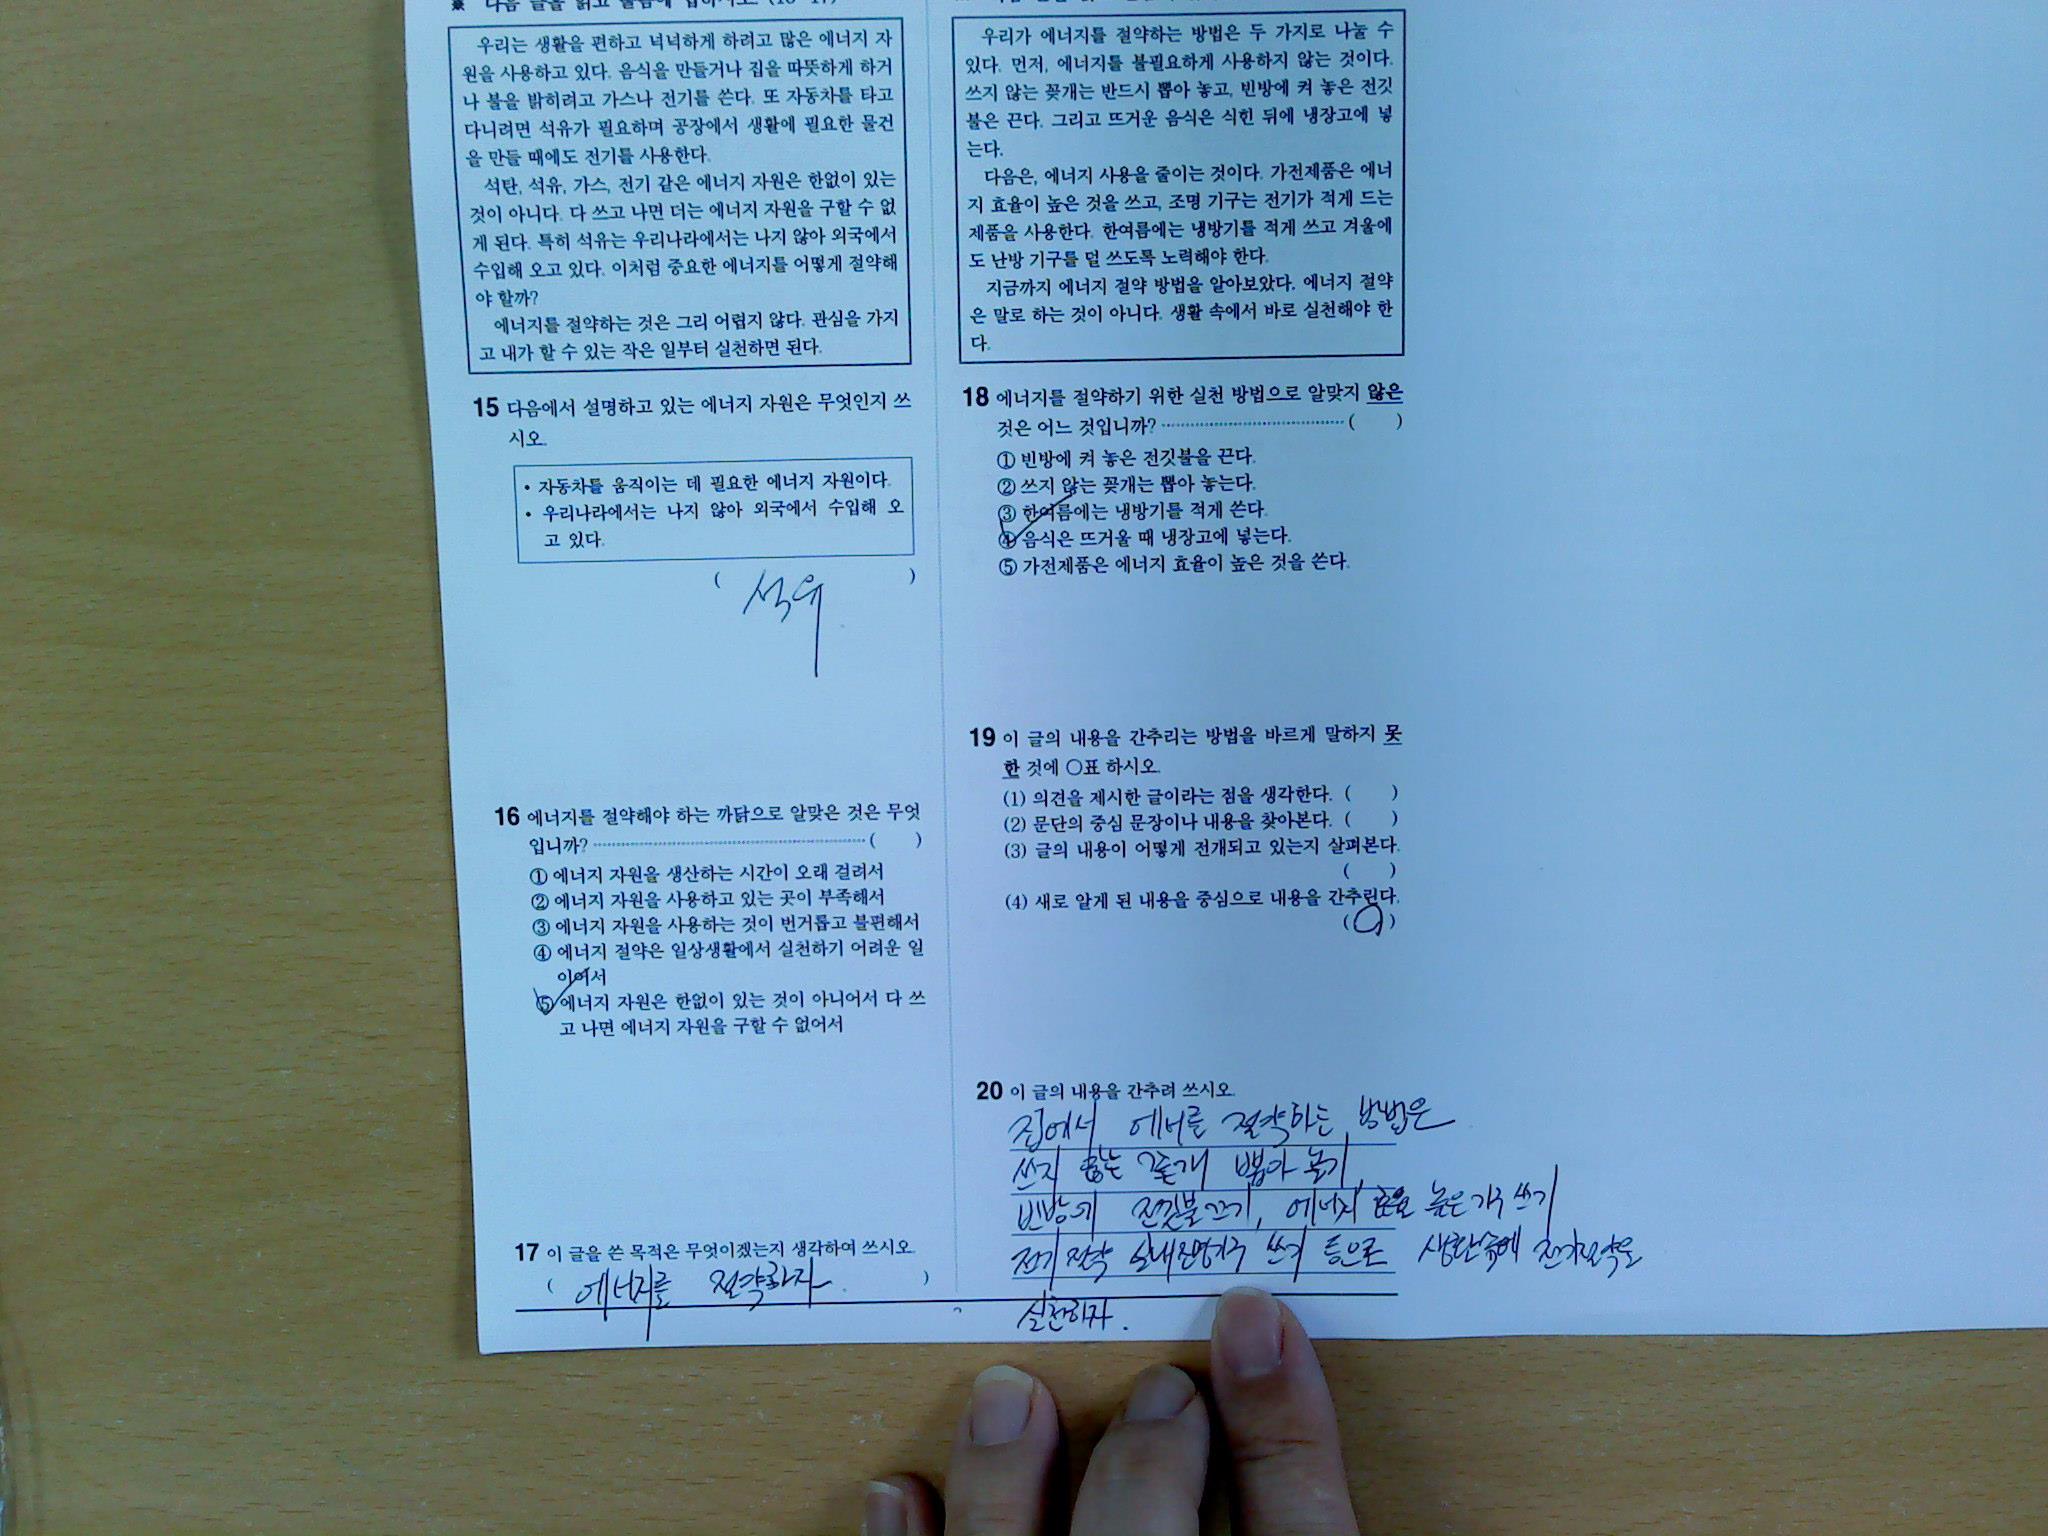 ※ 다음 글을 읽고 물음에 답하시오.
우리는 생활을 편하고 넉넉하게 하려고 많은 에너지 자
원을 사용하고 있다. 음식을 만들거나 집을 따뜻하게 하거
나 불을 밝히려고 가스나 전기를 쓴다. 또 자동차를 타고
다니려면 석유가 필요하며 공장에서 생활에 필요한 물건
을 만들 때에도 전기를 사용한다.
석탄, 석유, 가스, 전기 같은 에너지 자원은 한없이 있는
것이 아니다. 다 쓰고 나면 더는 에너지 자원을 구할 수 없
게 된다. 특히 석유는 우리나라에서는 나지 않아 외국에서
수입해 오고 있다. 이처럼 중요한 에너지를 어떻게 절약해
야 할까?
에너지를 절약하는 것은 그리 어렵지 않다. 관심을 가지
고 내가 할 수 있는 작은 일부터 실천하면 된다.
15 다음에서 설명하고 있는 에너지 자원은 무엇인지 쓰
시오.
• 자동차를 움직이는 데 필요한 에너지 자원이다.
• 우리나라에서는 나지 않아 외국에서 수입해 오
고 있다.
( 석유 )
16 에너지를 절약해야 하는 까닭으로 알맞은 것은 무엇
입니까? ( )
① 에너지 자원을 생산하는 시간이 오래 걸려서
② 에너지 자원을 사용하고 있는 곳이 부족해서
③ 에너지 자원을 사용하는 것이 번거롭고 불편해서
④ 에너지 절약은 일상생활에서 실천하기 어려운 일
이어서
⑤ 에너지 자원은 한없이 있는 것이 아니어서 다 쓰
고 나면 에너지 자원을 구할 수 없어서
17 이 글을 쓴 목적은 무엇이겠는지 생각하여 쓰시오.
( 에너지를 절약하자. )
우리가 에너지를 절약하는 방법은 두 가지로 나눌 수
있다. 먼저, 에너지를 불필요하게 사용하지 않는 것이다.
쓰지 않는 꽂개는 반드시 뽑아 놓고, 빈방에 켜 놓은 전깃
불은 끈다. 그리고 뜨거운 음식은 식힌 뒤에 냉장고에 넣
는다.
다음은, 에너지 사용을 줄이는 것이다. 가전제품은 에너
지 효율이 높은 것을 쓰고, 조명 기구는 전기가 적게 드는
제품을 사용한다. 한여름에는 냉방기를 적게 쓰고 겨울에
도 난방 기구를 덜 쓰도록 노력해야 한다.
지금까지 에너지 절약 방법을 알아보았다. 에너지 절약
은 말로 하는 것이 아니다. 생활 속에서 바로 실천해야 한
다.
18 에너지를 절약하기 위한 실천 방법으로 알맞지 않은
것은 어느 것입니까? ( )
① 빈방에 켜 놓은 전깃불을 끈다.
② 쓰지 않는 꽂개는 뽑아 놓는다.
③ 한여름에는 냉방기를 적게 쓴다.
④ 음식은 뜨거울 때 냉장고에 넣는다.
⑤ 가전제품은 에너지 효율이 높은 것을 쓴다.
19 이 글의 내용을 간추리는 방법을 바르게 말하지 못
한 것에 ○표 하시오.
(1) 의견을 제시한 글이라는 점을 생각한다. ( )
(2) 문단의 중심 문장이나 내용을 찾아본다. ( )
(3) 글의 내용이 어떻게 전개되고 있는지 살펴본다.
( )
(4) 새로 알게 된 내용을 중심으로 내용을 간추린다.
( ○ )
20 이 글의 내용을 간추려 쓰시오.
집에서 에너를 절약하는 방법은
쓰지 않는 꽂개 뽑아 놓기,
빈방에 전깃불끄기, 에너지 높은 기구 쓰기
전기 절약 쓰기 등으로 생활속에 전기절약을
실천하자.